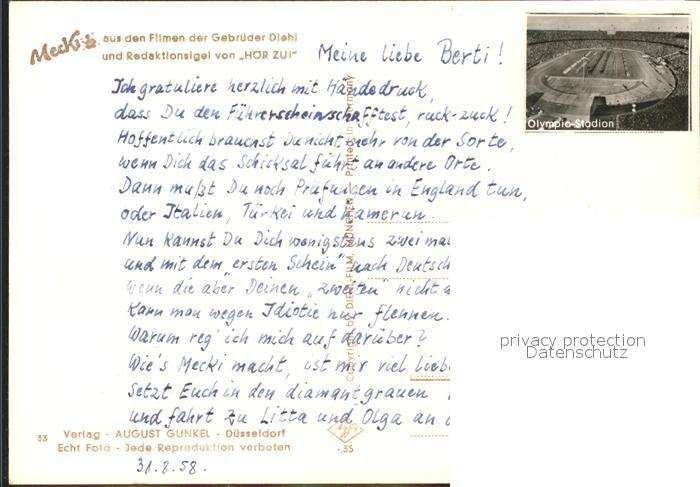 Mecki aus den Filmen der Gebrüder Diehl
und Redaktionsigel von „HÖR ZU!"
Meine liebe Berti!
Olympia-Stadion
Ich gratuliere herzlich mit Händedruck,
dass Du den Führerschein schafftest, ruck-zuck!
Hoffentlich brauchst Du nicht mehr von der Sorte,
wenn Dich das Schicksal führt an andere Orte.
Dann mußt Du noch Prüfungen in England tun,
oder Italien, Türkei und Kamerun.
Nun kannst Du Dich wenigstens zweimal
und mit dem „ersten Schein" nach Deutsch
wenn die aber Deinen „zweiten" nicht a
Kann man wegen Idiotie nur flennen.
Warum reg' ich mich auf darüber?
Wie's Mecki macht, ist mir viel liebe
Setzt Euch in den diamantgrauen
und fahrt zu Litta und Olga an d
Copyright by DIEHL-FILM, MÜNCHEN Printed in Germany
privacy protection
Datenschutz
33 Verlag - AUGUST GUNKEL - Düsseldorf
Echt Foto - Jede Reproduktion verboten
-.35
31.8.58.